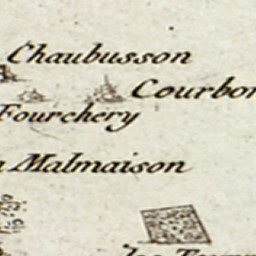 Chaubusson
Courbon
Fourchery
Malmaison